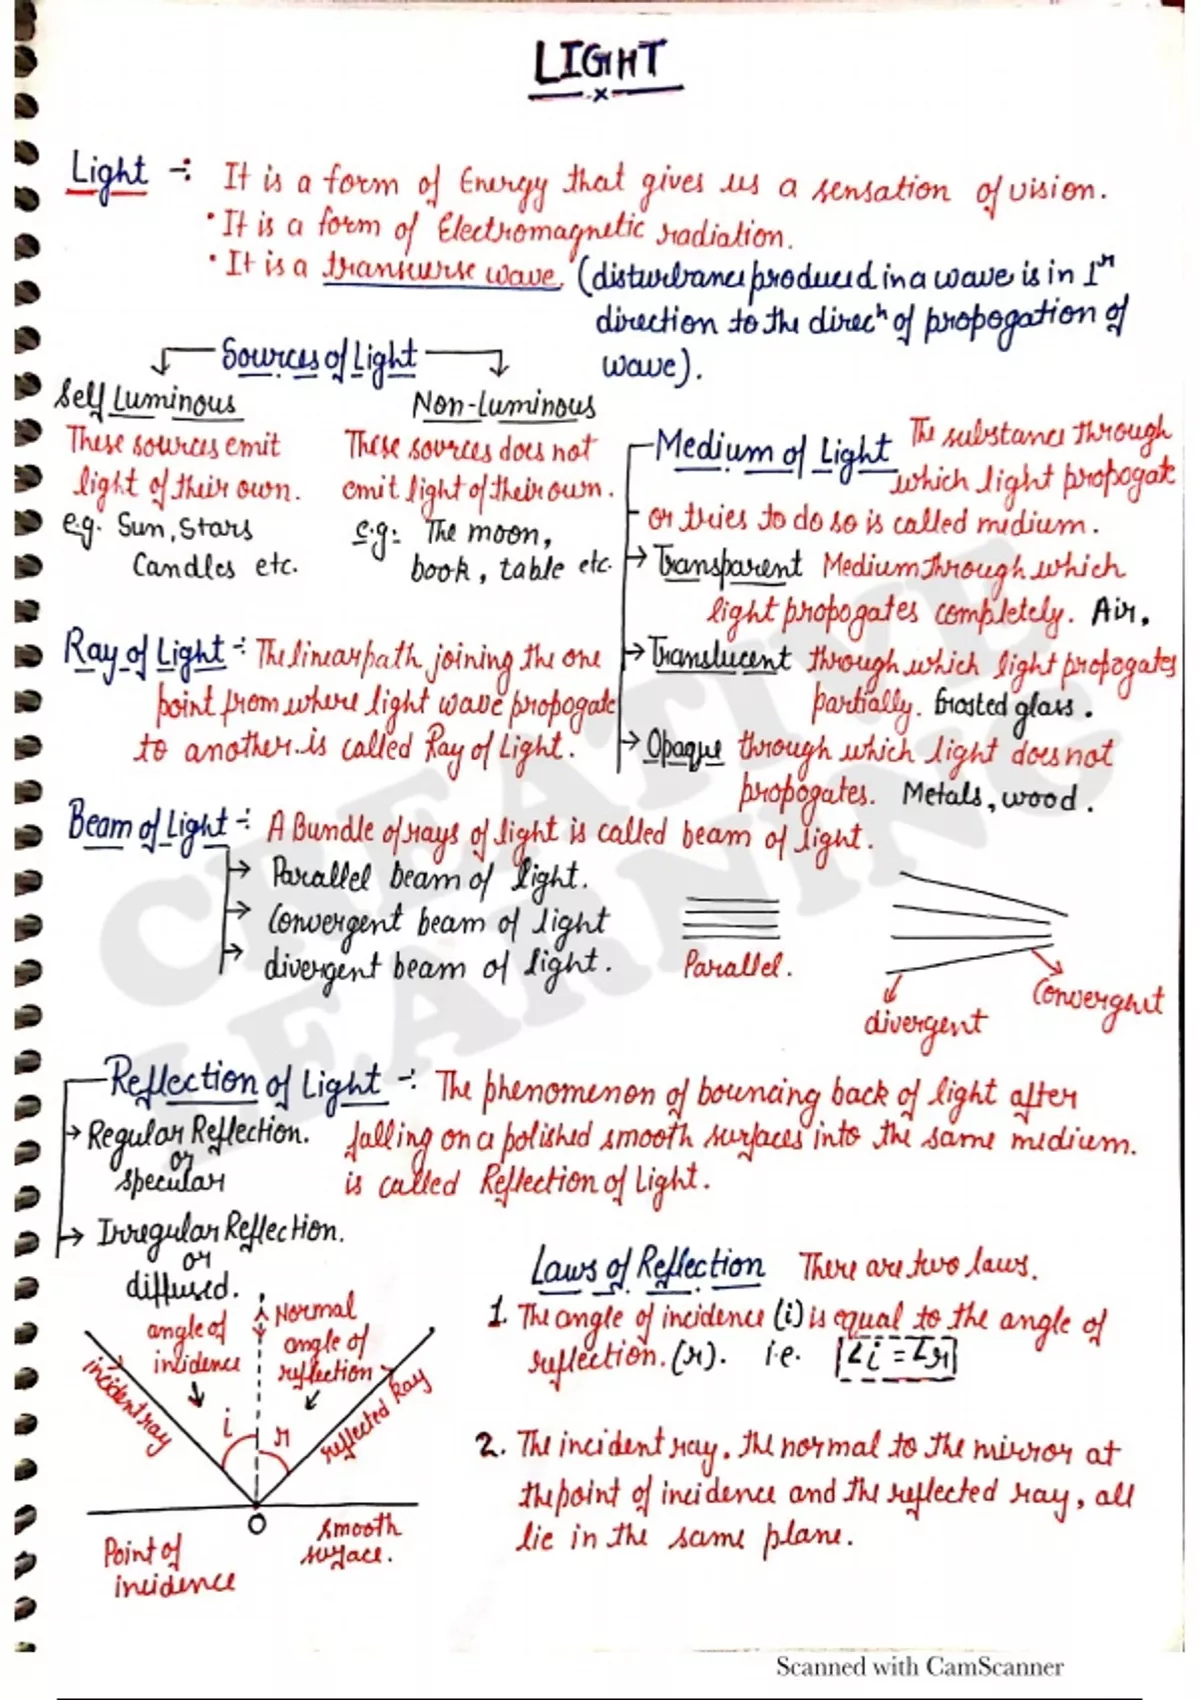 LIGHT
Light -: It is a form of Energy that gives us a sensation of vision.
• It is a form of Electromagnetic radiation.
• It is a transverse wave. (disturbance produced in a wave is in ⊥r
direction to the direcn of propogation of
wave).
Sources of Light
Self Luminous
These sources emit
light of their own.
e.g. Sun, Stars
Candles etc.
Non-Luminous
These sources does not
emit light of their own.
e.g: The moon,
book, table etc.
Medium of Light The substance through
which light propogate
or tries to do so is called medium.
→ Transparent Medium through which
light propogates completely. Air.
→ Translucent through which light propogates
partially. frosted glass.
→ Opaque through which light does not
propogates. Metals, wood.
Ray of Light -: The linear path joining the one
point from where light wave propogate
to another is called Ray of Light.
Beam of Light -: A Bundle of rays of light is called beam of light.
→ Parallel beam of light.
→ Convergent beam of light
→ divergent beam of light.
Parallel.
divergent
Convergent
Reflection of Light -: The phenomenon of bouncing back of light after
falling on a polished smooth surfaces into the same medium.
is called Reflection of Light.
→ Regular Reflection.
or
specular
→ Irregular Reflection.
or
diffused.
Normal
angle of
incidence
angle of
reflection
incident ray
reflected Ray
i
r
O
Point of
incidence
smooth
surface.
Laws of Reflection There are two laws.
1. The angle of incidence (i) is equal to the angle of
reflection. (r). i.e. ∠i = ∠r
2. The incident ray, the normal to the mirror at
the point of incidence and the reflected ray, all
lie in the same plane.
CREATIVE
LEARNING
Scanned with CamScanner